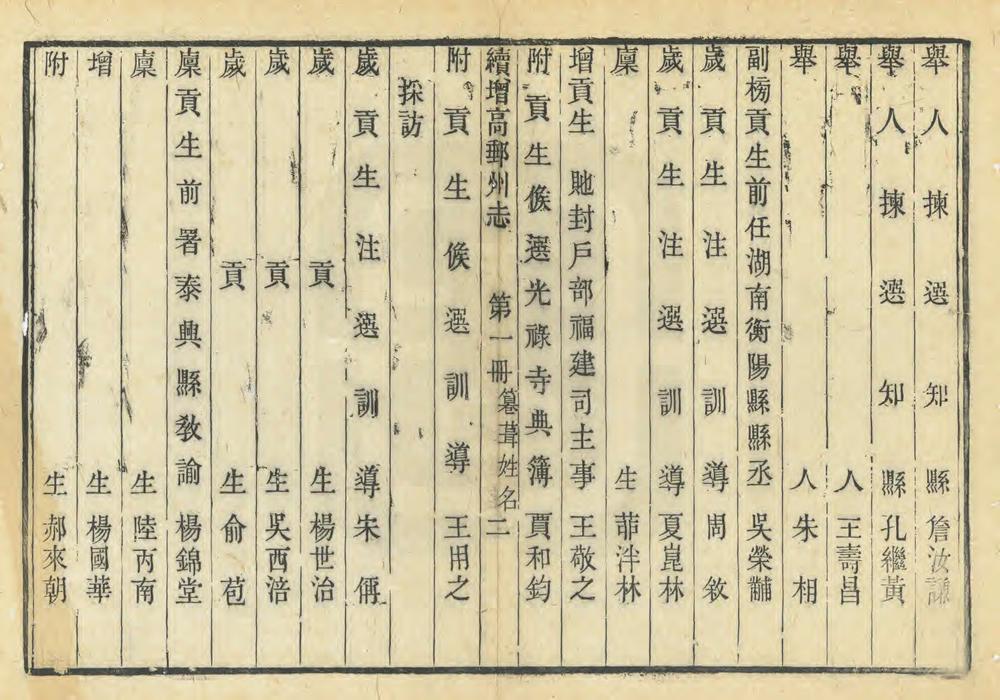 舉人揀選知縣詹汝謙
舉人揀選知縣孔繼黃
舉人王壽昌
舉人朱相
副榜貢生前任湖南衡陽縣縣丞吳榮黼
歲貢生注選訓導周敘
歲貢生注選訓導夏崑林
廩生菲泮林
增貢生貤封戶部福建司主事王敬之
附貢生候選光祿寺典簿賈和鈞
續增高郵州志 第一冊 篡葺姓名 二
附貢生候選訓導王用之
採訪
歲貢生注選訓導宋偁
歲貢生楊世治
歲貢生吳西涪
歲貢生俞苞
廩貢生前署泰興縣教諭楊錦堂
廩生陸丙南
增生楊國華
附生郝來朝